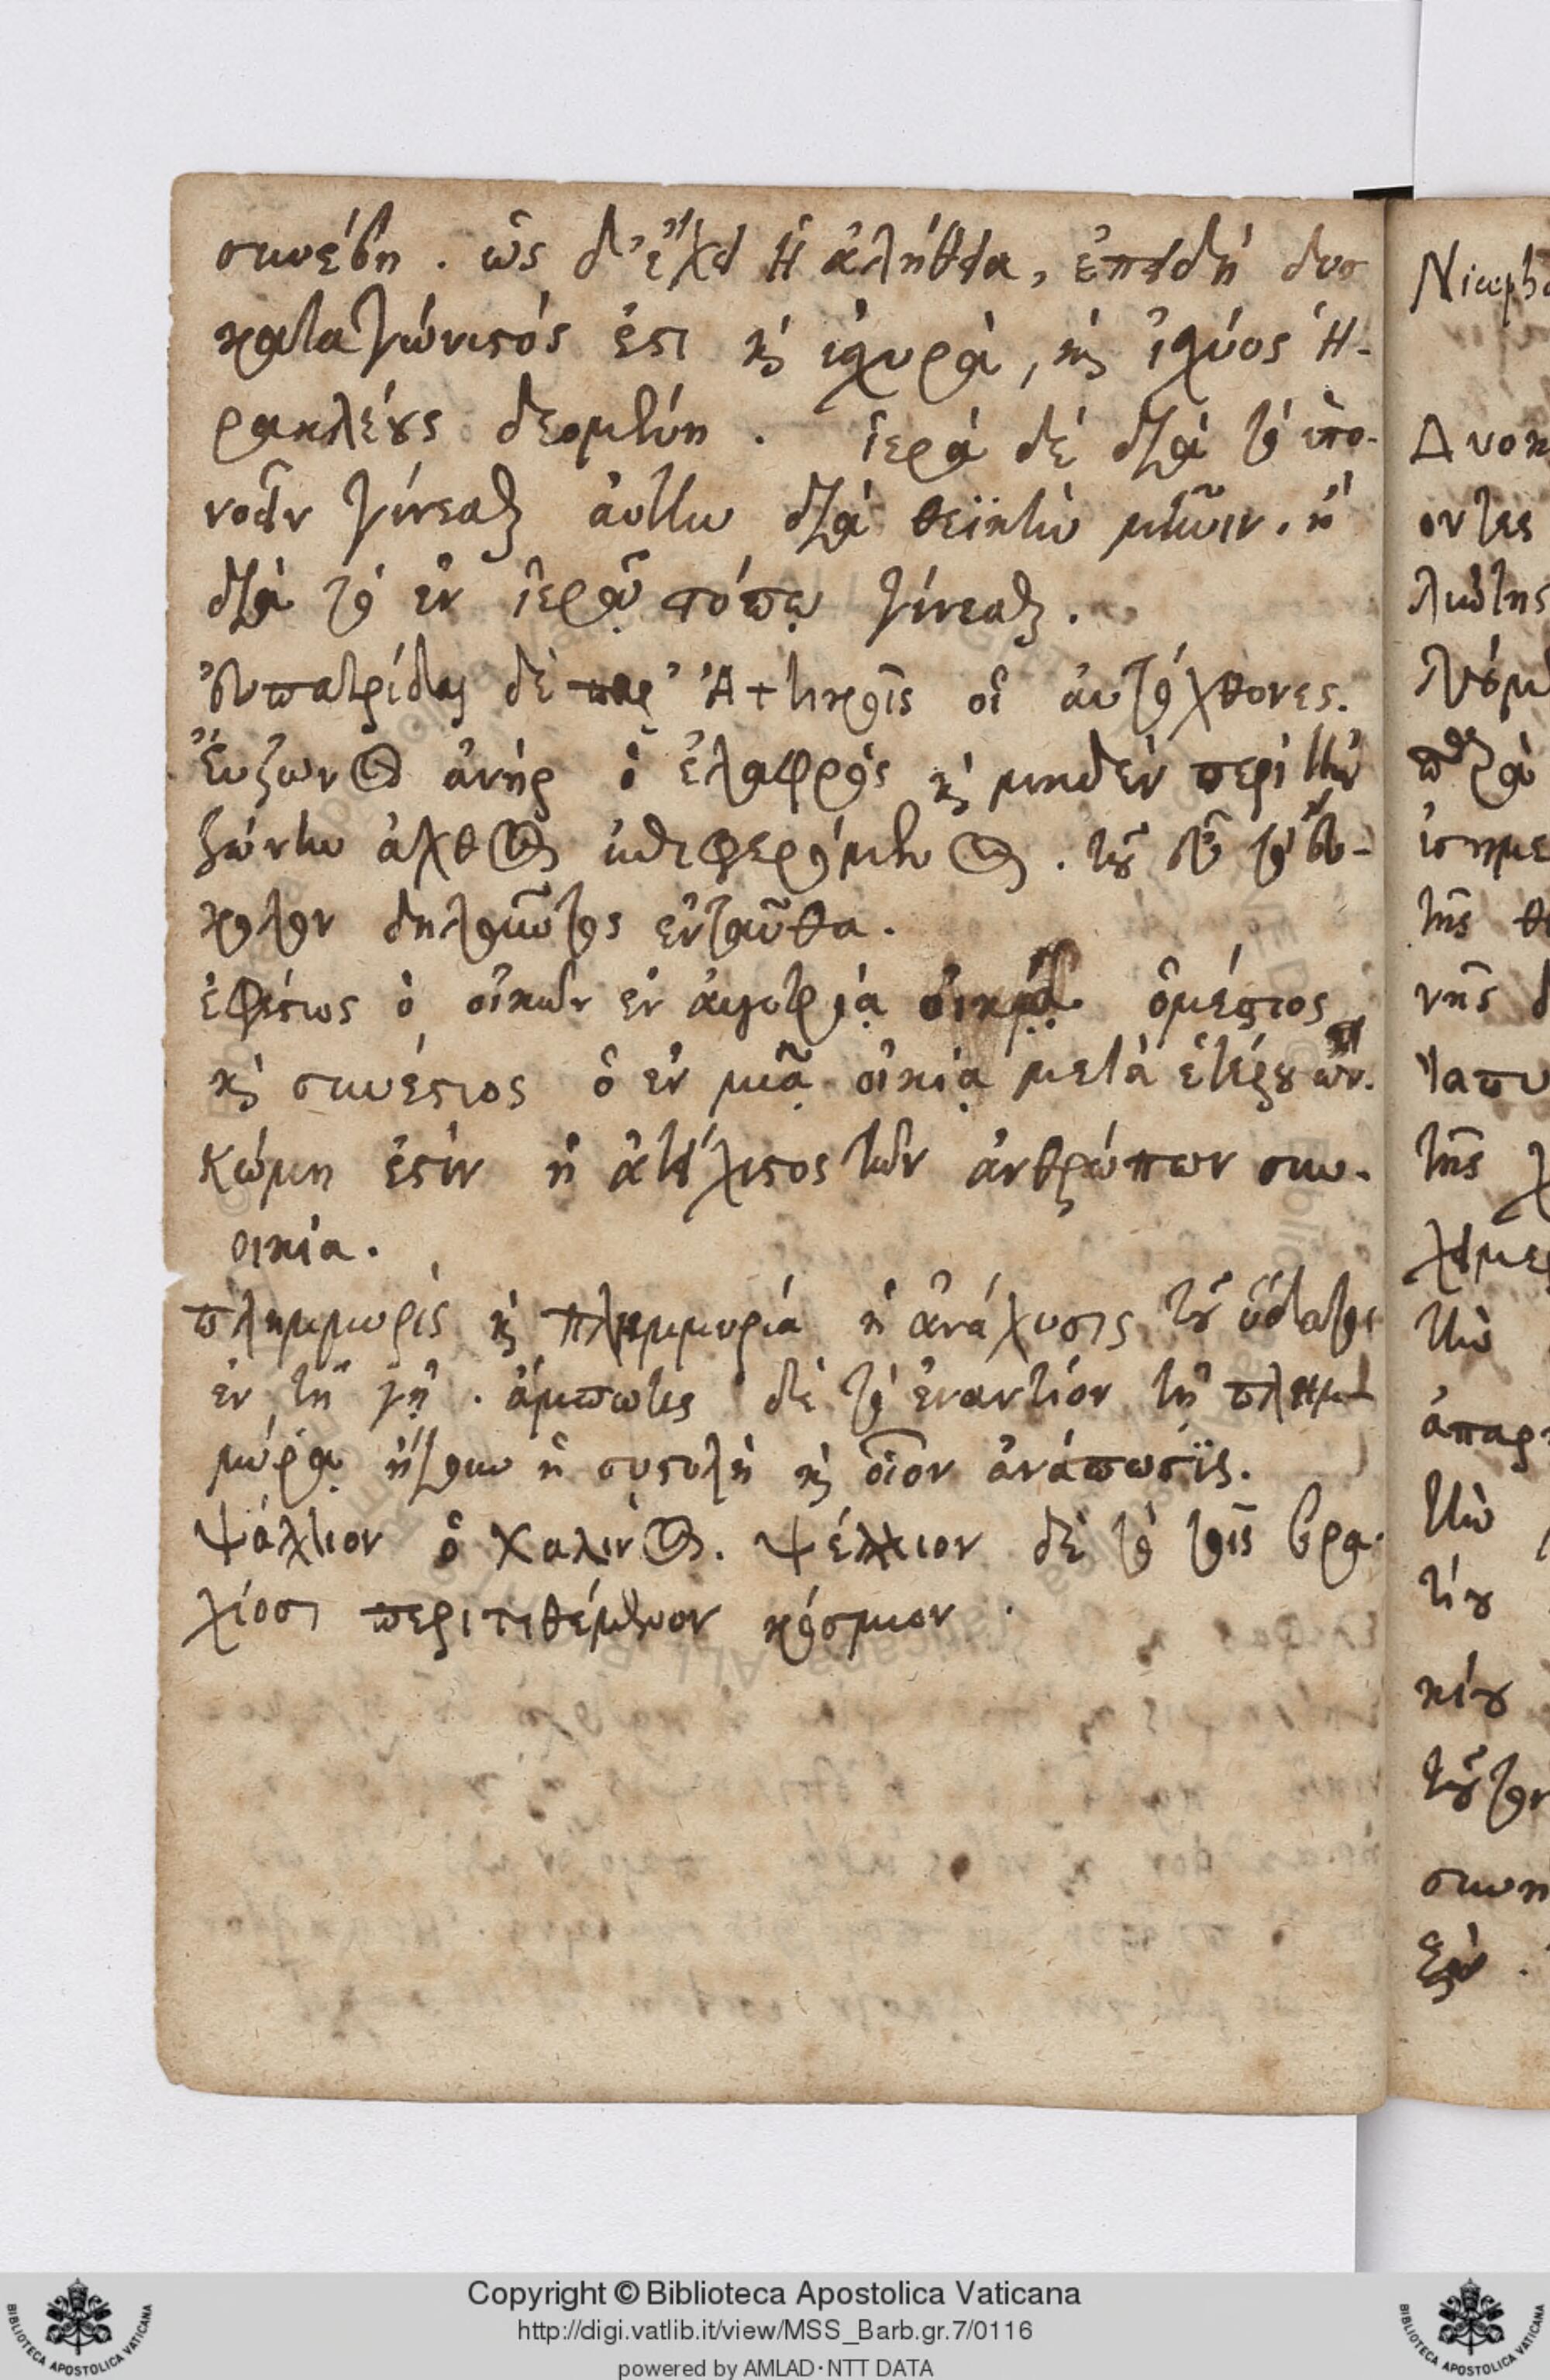 συνέβη . ὡς δ' ἔχει ἡ ἀλήθεια, ἐπειδή δυσ
καταγώνιστός ἐστι καὶ ἰσχυρὰ, καὶ ἰσχύος Ἡ-
ρακλέους δεομένη . ἱερὰ δέ διὰ τό ὑπο-
νοεῖν γίνεσθαι ἀυτὴν διὰ θεϊκὴν μῆνιν. ἢ
διὰ τό ἐν ἱερῷ τόπῳ γίνεσθαι.
Ἐυπατρίδαι δὲ παρ' Ἀττικοῖς οἱ ἀυτόχθονες.
Ἔυζωνος ἀνήρ ὁ ἐλαφρός καὶ μηδὲν περὶ τὴν
ζώνην ἄχθος ἐπιφερόμενος . τοῦ εὖ τὸ ἔυ-
κολον δηλοῦντος ἐνταῦθα.
ἐφέστιος ὁ οἰκῶν ἐν ἀλλοτρίᾳ ὁμέστιος
καὶ συνέστιος ὁ ἐν μιᾷ οἰκίᾳ μετὰ ἑτέρου ὤν.
κώμη ἐστὶν ἡ ἀτείχιστος τῶν ἀνθρώπων συν-
οικία.
πλημμυρὶς καὶ πλημμυρία ἡ ἀνάχυσις τοῦ ὕδατος
ἐν τῇ γῇ . ἄμπωτις δὲ τὸ ἐναντίον τῇ πλημ-
μύρᾳ ἤγουν ἡ συστολὴ καὶ οἷον ἀνάπωσις.
Ψάλλιον ὁ χαλινός. Ψέλλιον δὲ τὸ τοῖς βρα-
χίοσι περιτιθέμενον κόσμιον .
Δυσκ
οντες
λιώτης
ἰσημε
τῆς θ
νῆς δ
Ἰαπυ
τῆς χ
χειμε
τὴν
ἀπαρ
τὴν
τίου
κίου
Copyright © Biblioteca Apostolica Vaticana
http://digi.vatlib.it/view/MSS_Barb.gr.7/0116
powered by AMLAD·NTT DATA
BIBLIOTECA APOSTOLICA VATICANA
BIBLIOTECA APOSTOLICA VATICANA